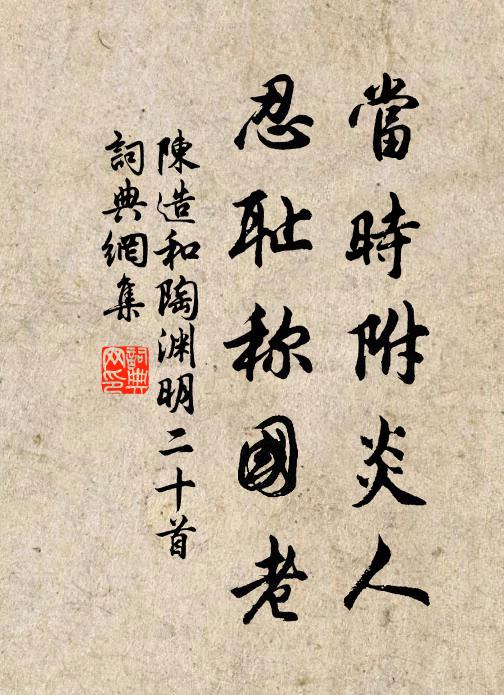 當時附炎人
忍耻称國老
陳造和陶淵明二十首
詞典網集
詞典
网印